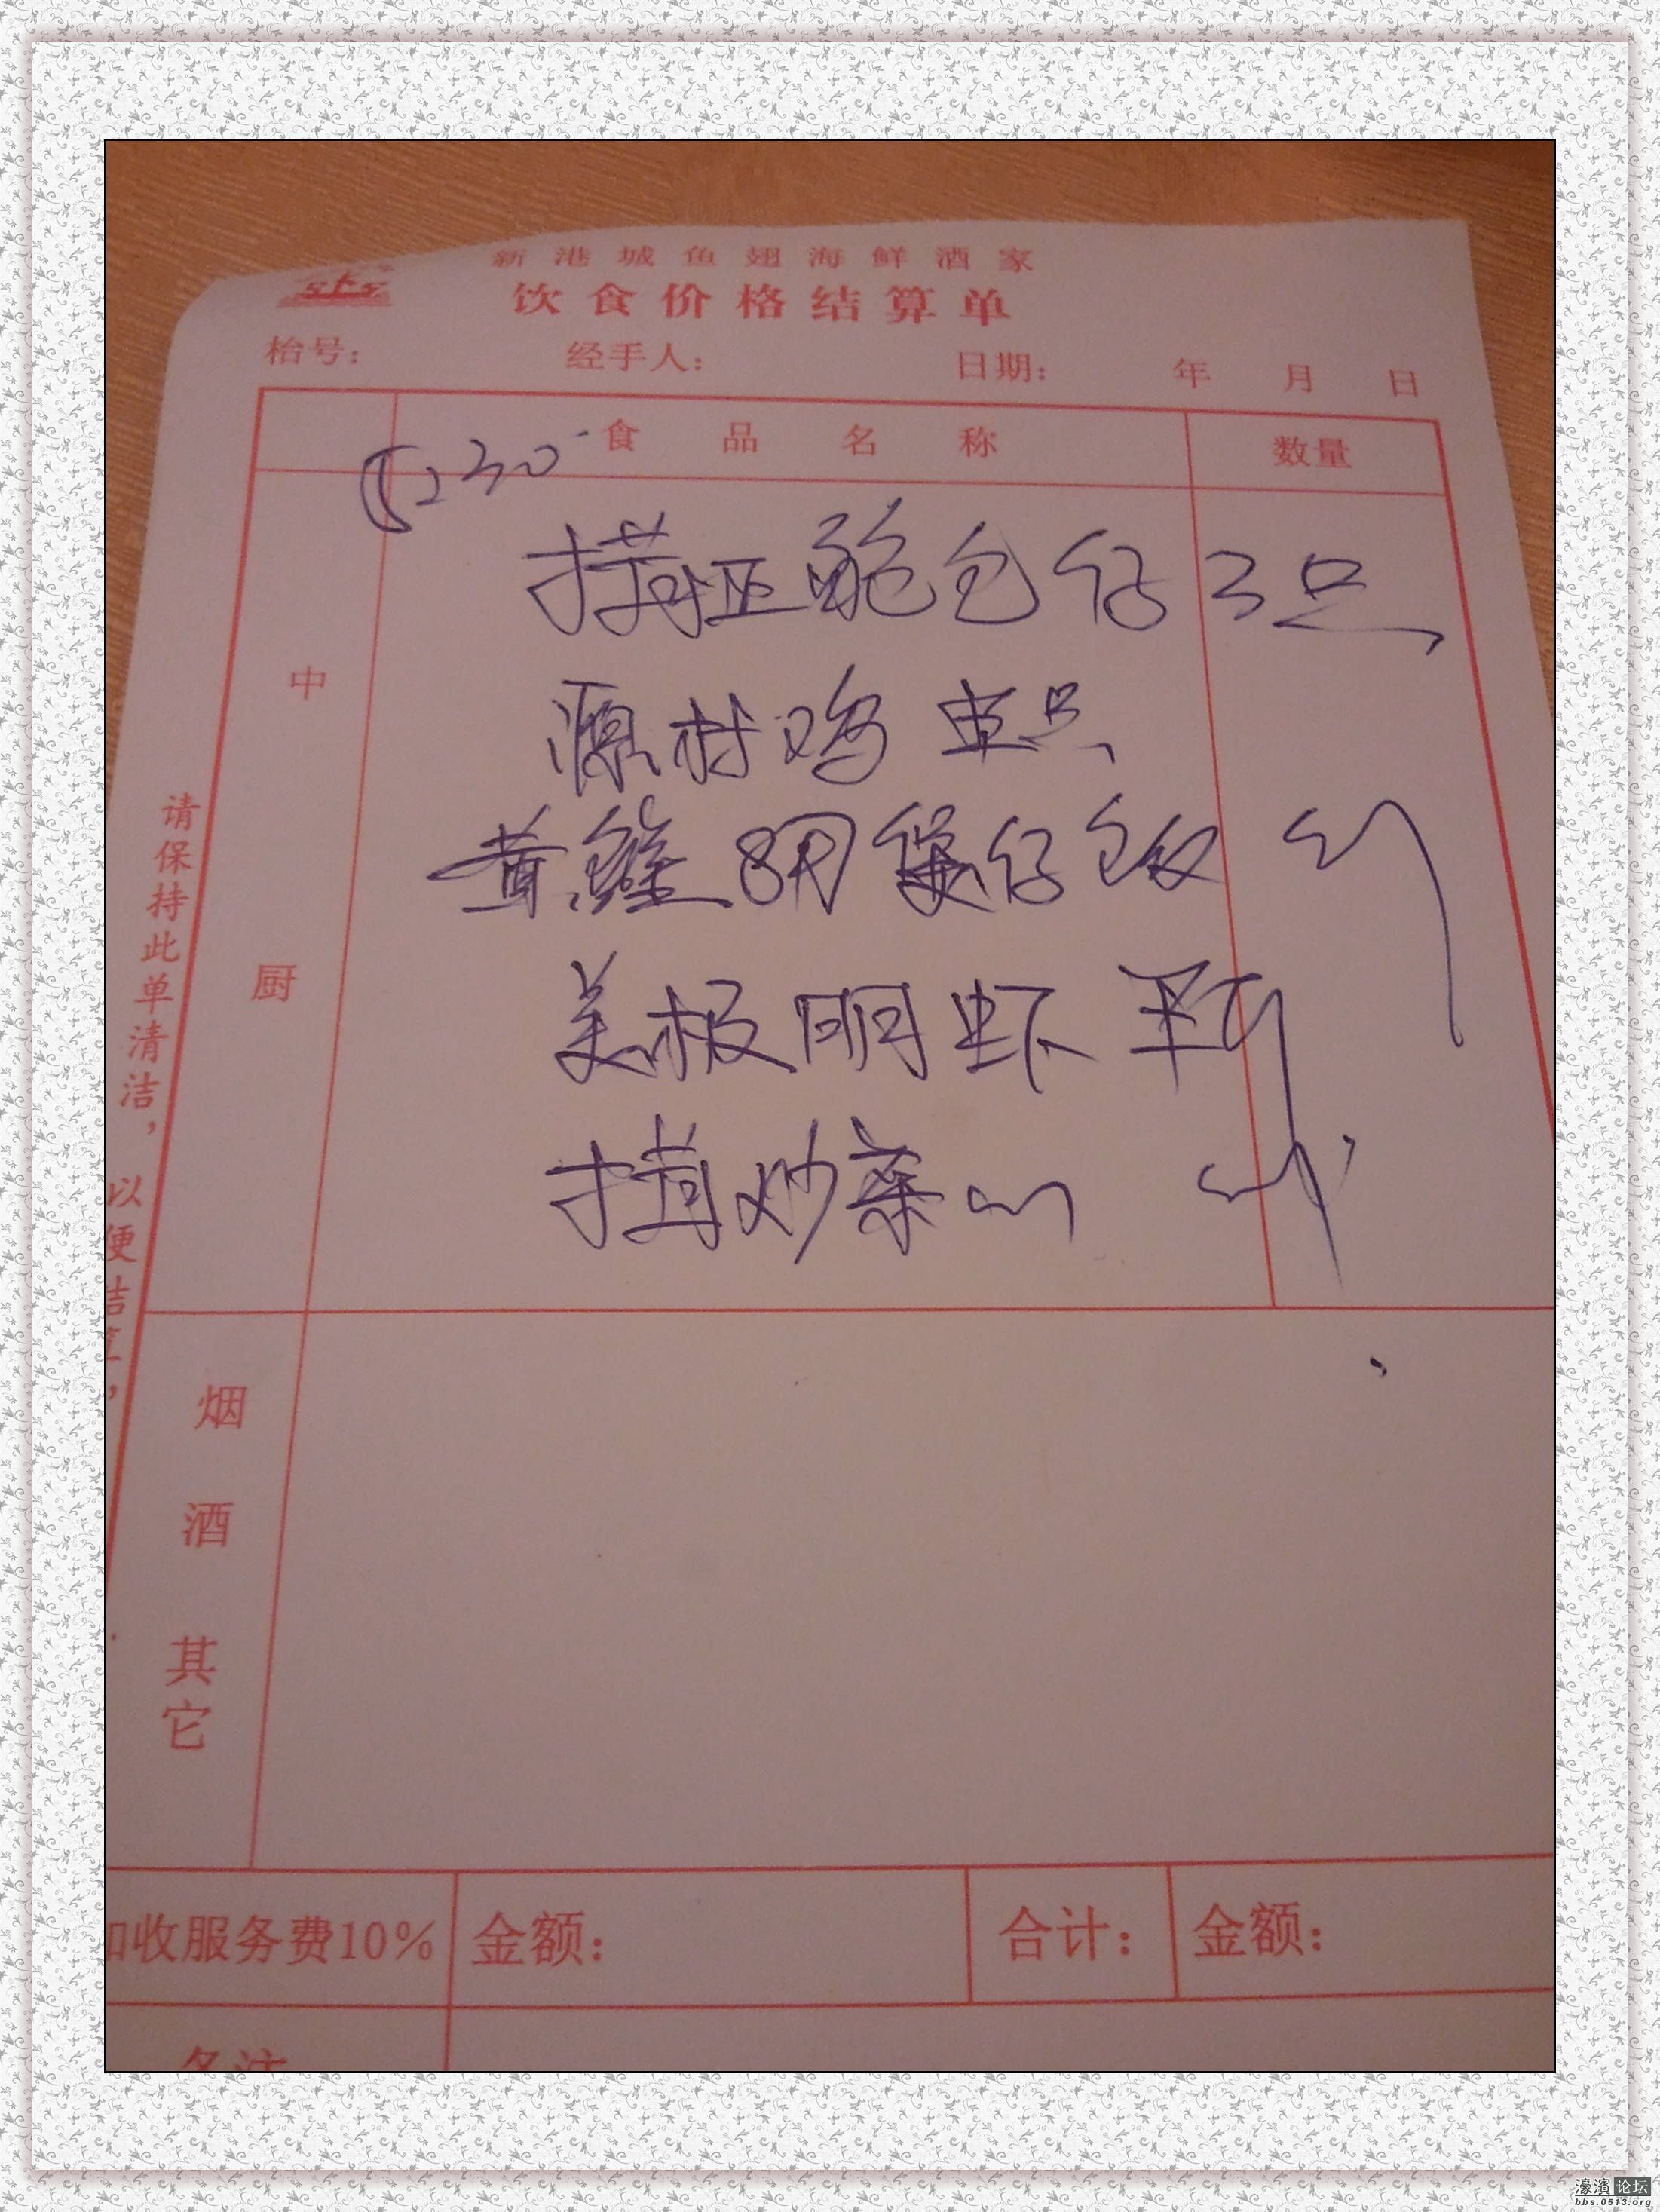 新港城鱼翅海鲜酒家
饮食价格结算单
枱号: 经手人: 日期: 年 月 日
食品名称 数量
230
鲍包仔 3只
源村鸡 只
中
黄鳝 煲仔饭
请保持此单清洁,以便结算,
厨
美极明虾
炒菜心
烟
酒
其
它
加收服务费10% 金额: 合计: 金额:
备注
濠滨论坛
bbs.0513.org